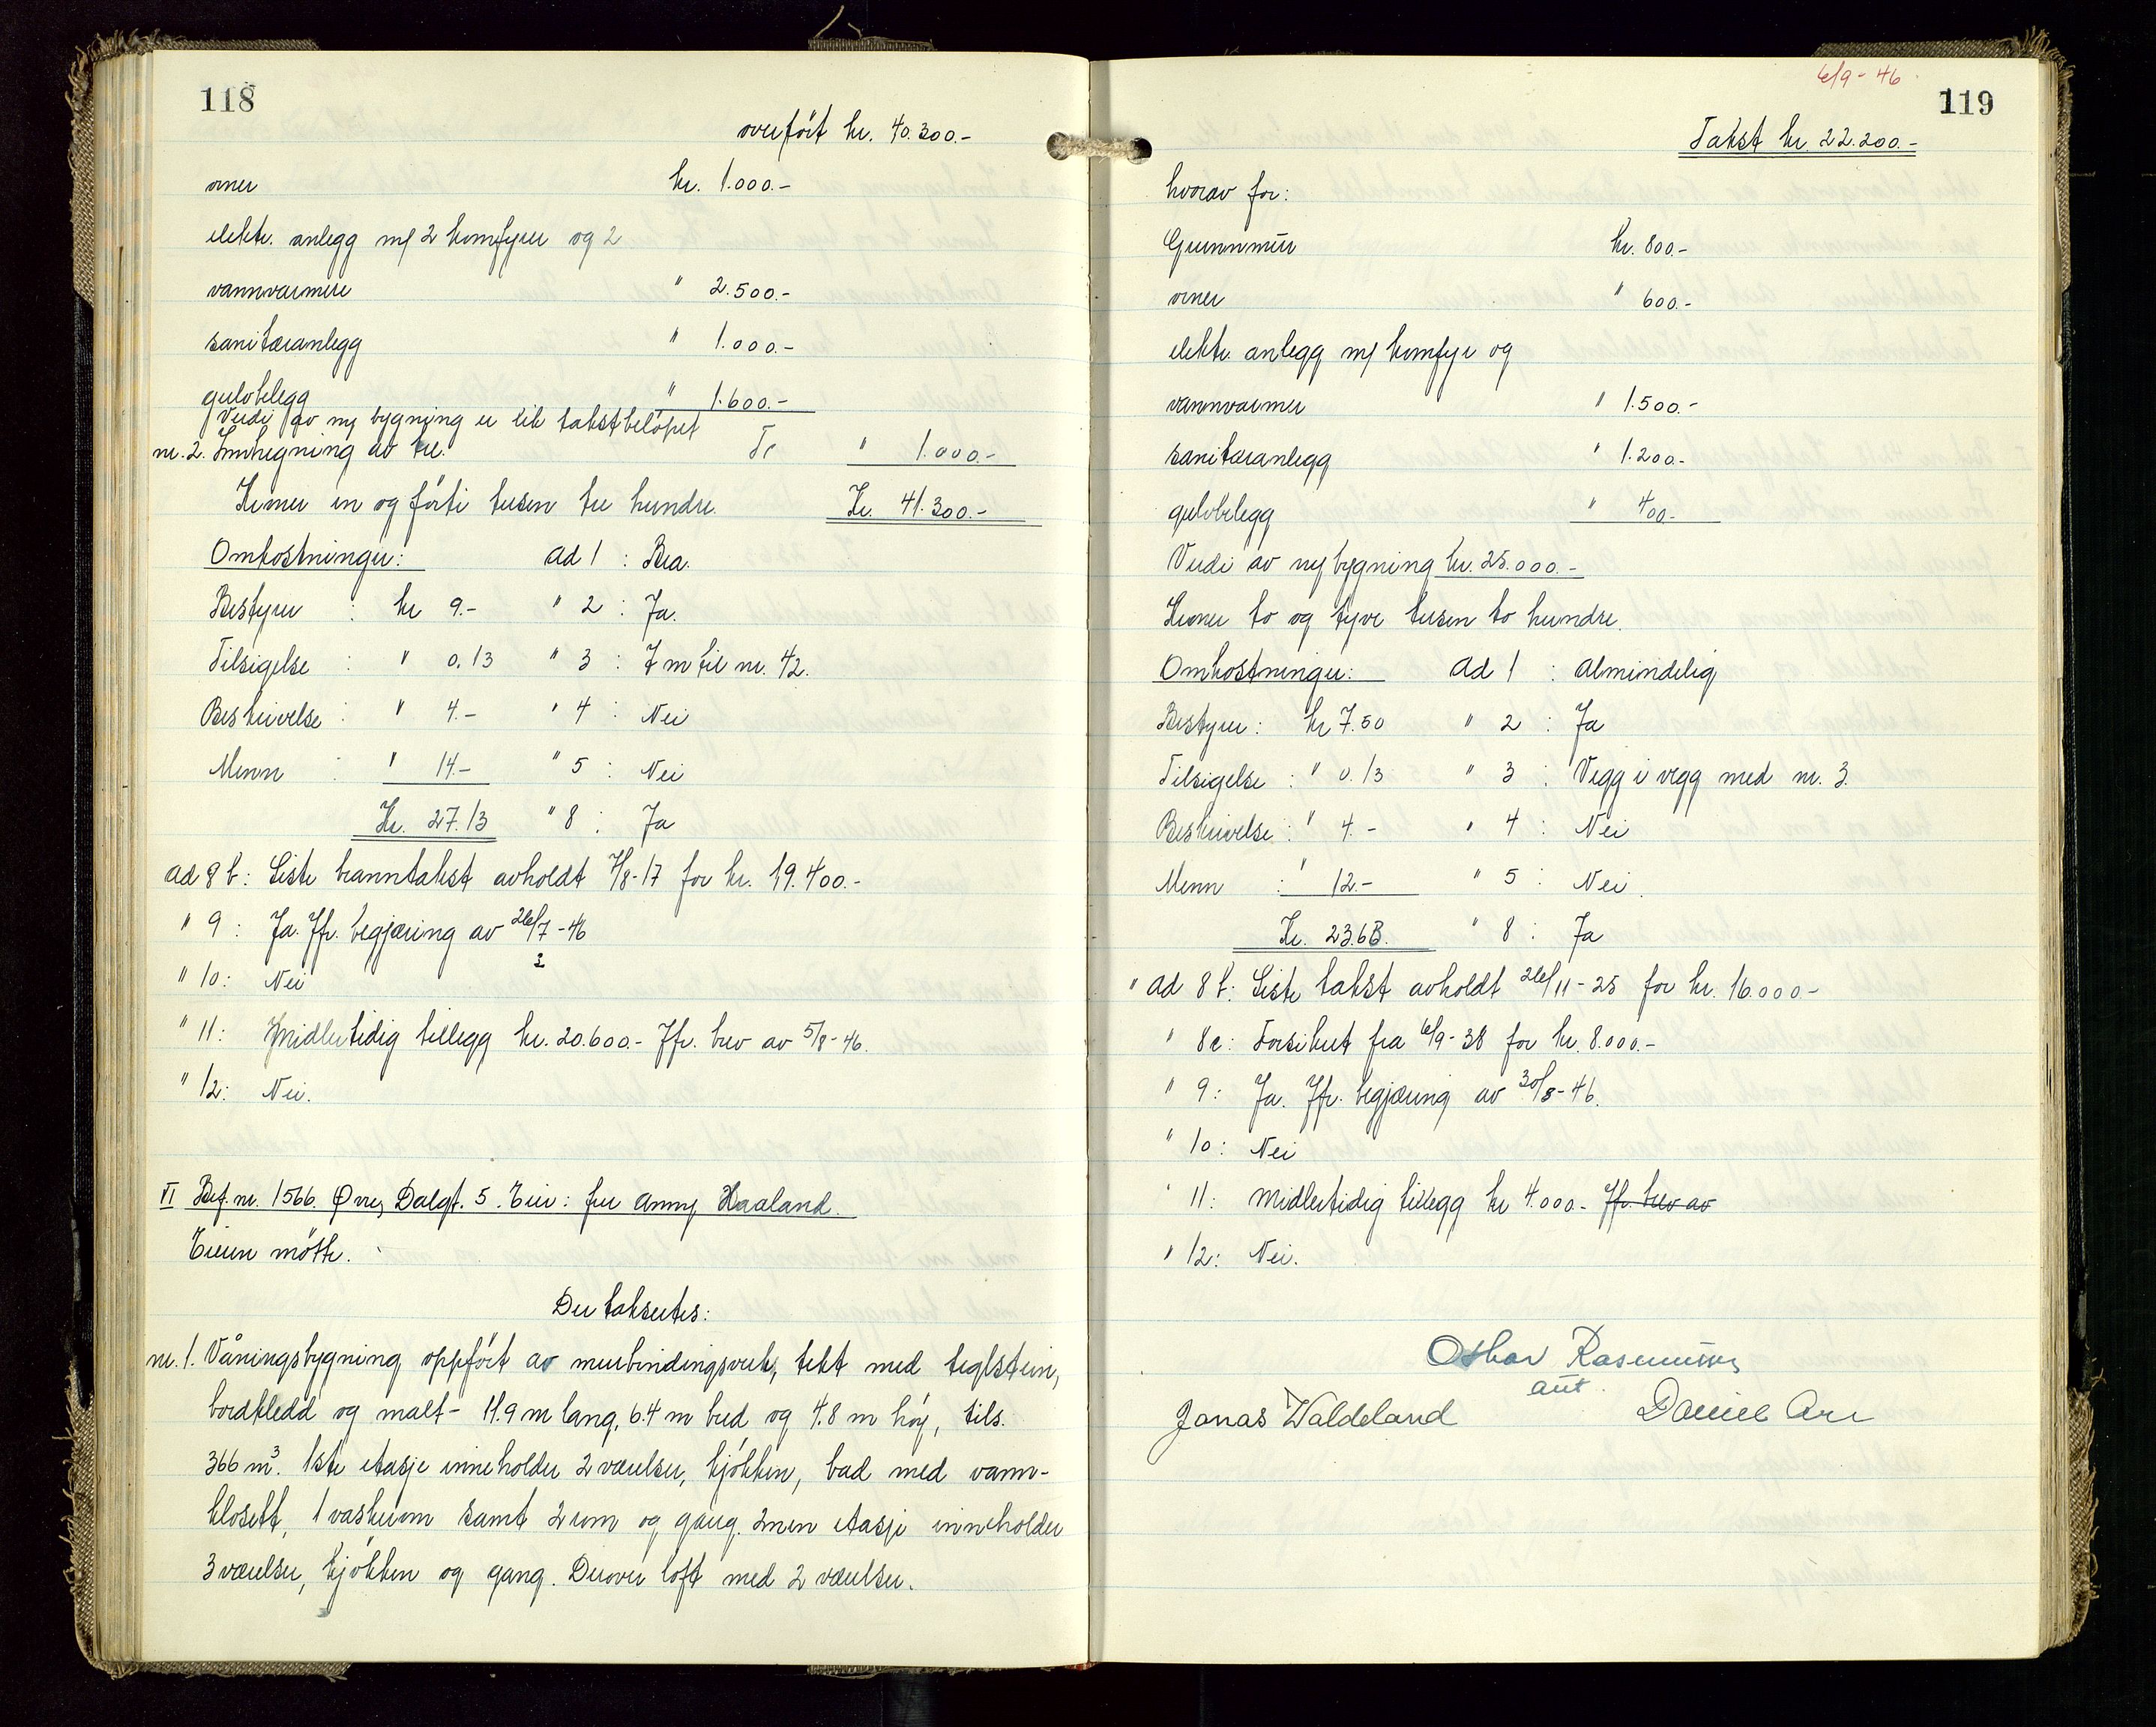 118
overført kr. 40.300.-
ovner kr. 1.000.-
elektr. anlegg m/ 2 komfyrer og 2
vannvarmere " 2.500.-
sanitæranlegg " 1.000.-
gulvbelegg " 1.600.-
Verdi av ny bygning er lik takstbeløpet
nr. 2. Innhegning av tre. Tr " 1.000.-
Kroner en og førti tusen tre hundre. Kr. 41.300.-
Omkostninger: ad 1 : Bra.
Bestyrer : kr 9.- " 2 : Ja.
Tilsigelse : " 0.13 " 3 : 7 m til nr. 42.
Beskrivelse : " 4.- " 4 : Nei
Menn : " 14.- " 5 : Nei
Kr. 27.13 " 8 : Ja
ad 8 b: Siste branntakst avholdt 7/8-17 for kr. 19.400.-
" 9 : Ja. Jfr. begjæring av 26/7-46
" 10: Nei
" 11: Midlertidig tillegg kr. 20.600.- Jfr. brev av 5/8-46.
" 12: Nei.
VI Bef. nr. 1566. Øvre Dalgt. 5. Eier: fru Anny Haaland.
Eieren møtte.
Der takseres:
nr. 1. Våningsbygning oppført av murbindingsverk, tekt med teglstein,
bordkledd og malt - 11.9 m lang, 6.4 m bred og 4.8 m høy, tils.
366 m³. 1ste etasje inneholder 2 værelser, kjøkken, bad med vann-
klosett, 1 vaskerom samt 2 rom og gang. 2nen etasje inneholder
3 værelser, kjøkken og gang. Derover loft med 2 værelser.
6/9-46
119
Takst kr. 22.200.-
hvorav for:
Grunnmur kr. 800.-
ovner " 600.-
elektr. anlegg m/ komfyr og
vannvarmer " 1.500.-
sanitæranlegg " 1.200.-
gulvbelegg " 400.-
Verdi av ny bygning kr. 25.000.-
Kroner to og tyve tusen to hundre.
Omkostninger: Ad 1 : Almindelig
Bestyrer : kr 7.50 " 2 : Ja
Tilsigelse : " 0.13 " 3 : Vegg i vegg med nr. 3.
Beskrivelse : " 4.- " 4 : Nei
Menn : " 12.- " 5 : Nei.
Kr. 23.63. " 8 : Ja
" Ad 8 b: Siste takst avholdt 26/11-25 for kr. 16.000.-
" 8c: Forsikret fra 6/9-38 for kr. 8.000.-
" 9: Ja. Jfr. begjæring av 30/8-46.
" 10: Nei
" 11: Midlertidig tillegg kr 4.000.- Jfr. brev av
" 12: Nei.
Oskar Rasmussen
aut.
Jonas Waldeland Daniel Arr